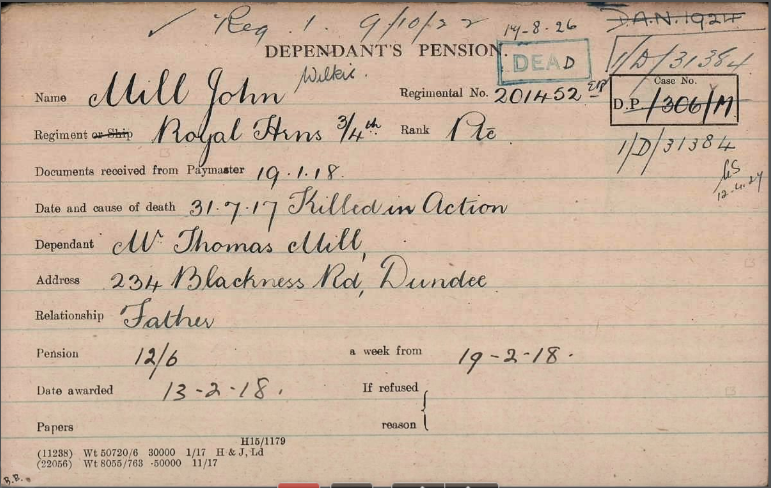 ✓ Reg. 1. 9/10/22 17-8-26 D.A.N. 1924
DEPENDANT'S PENSION.
DEAD
1/D/31384
Wilkie.
Name Mill John Regimental No. 201452
Case No.
D.P./306/M
Regiment or Ship Royal Hrs 3/4th Rank Pte
1/D/31384
Documents received from Paymaster 19.1.18.
12.4.27
Date and cause of death 31.7.17 Killed in Action
Dependant Mr Thomas Mill,
Address 234 Blackness Rd, Dundee
Relationship Father
Pension 12/6 a week from 19-2-18.
Date awarded 13-2-18. If refused
Papers reason
H15/1179
(11238) Wt 50720/6 30000 1/17 H & J, Ld
(22056) Wt 8055/763 -50000 11/17
B.B.